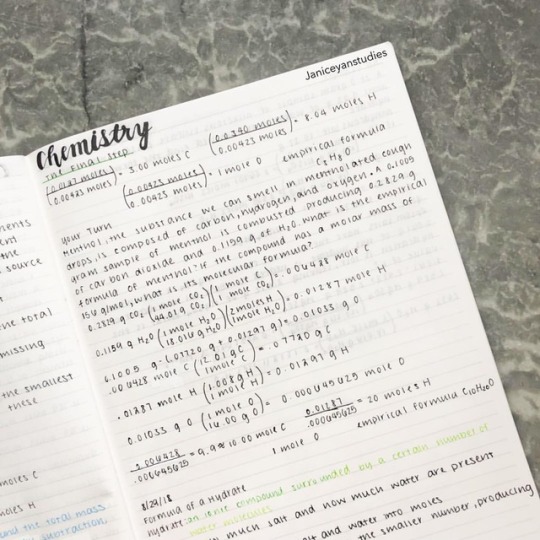 Janiceyanstudies
Chemistry
The Final Step
(0.0127 moles)/(0.00423 moles) = 3.00 moles C (0.0340 moles)/(0.00423 moles) = 8.04 moles H
(0.00423 moles)/(0.00423 moles) = 1 mole O empirical formula
C₃H₈O
Your Turn
Menthol, the substance we can smell in mentholated cough
drops, is composed of carbon, hydrogen, and oxygen. A 0.1005
gram sample of menthol is combusted producing 0.2829 g
of carbon dioxide and 0.1159 g of H₂O. What is the empirical
formula of menthol? If the compound has a molar mass of
156 g/mol, what is its molecular formula?
0.2829 g CO₂ (1 mole CO₂/44.01 g CO₂)(1 mole C/1 mole CO₂) = .006428 mole C
0.1159 g H₂O (1 mole H₂O/18.016 g H₂O)(2 moles H/1 mole H₂O) = 0.01287 mole H
0.1005 g - (.07720 g + 0.01297 g) = 0.01033 g O
.006428 mole C (12.01 g C/1 mole C) = .07720 g C
.01287 mole H (1.008 g H/1 mole H) = 0.01297 g H
0.01033 g O (1 mole O/16.00 g O) = 0.000645625 mole O
0.006428/.000645625 = 9.9 ≈ 10.00 mole C 0.01287/.000645625 = 20 moles H
1 mole O empirical formula C₁₀H₂₀O
8/24/18
Formula of a Hydrate
hydrate: an ionic compound surrounded by a certain number of
water molecules
much salt and how much water are present
salt and water into moles
the smaller number, producing
ments
ent
the
source
the total
missing
the smallest
these
moles C
moles H
and the total mass
subtraction,